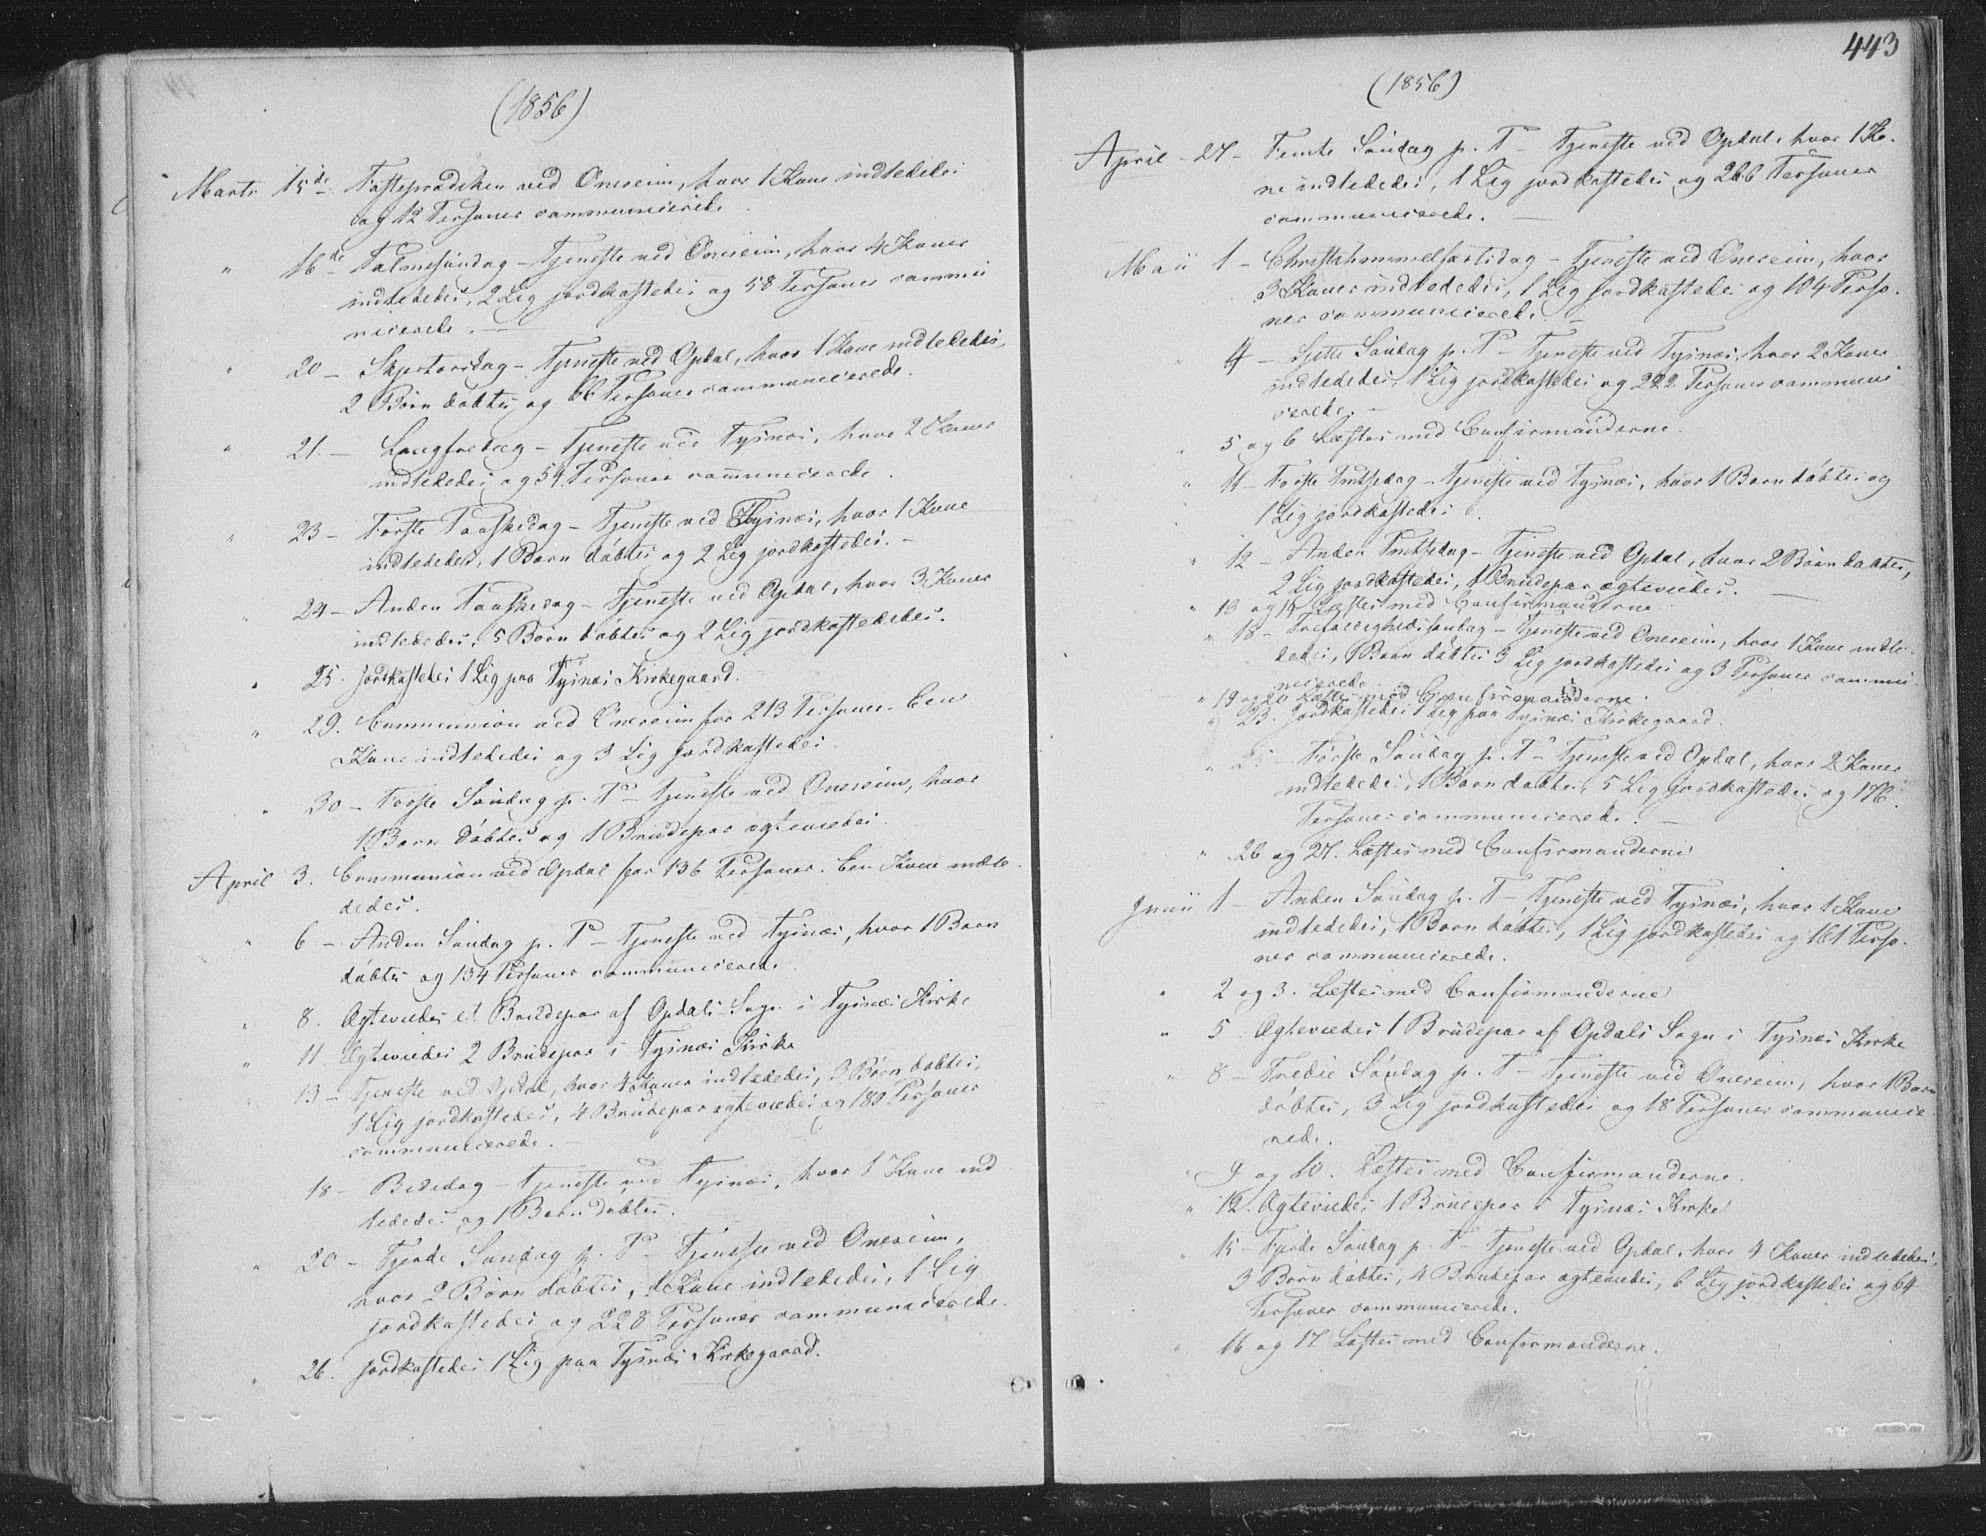 (1856)
Marts 15de Fasteprædiken ved Onereim, hvor 1 Kone indlededes
og 12 Personer communicerede.
" 16de Palmesøndag - Tjeneste ved Onereim, hvor 4 Koner
indlededes, 2 Lig jordkastedes og 58 Personer commu
nicerede. -
" 20 - Skjertorsdag - Tjeneste ved Opdal, hvor 1 Kone indlededes,
2 Børn døbtes og 66 Personer communicerede.
" 21. - Langfredag - Tjeneste ved Tysnæs, hvor 2 Koner
indlededes og 54 Personer communicerede.
" 23 - Første Paaskedag - Tjeneste ved Tysnæs, hvor 1 Kone
indlededes, 1 Barn døbtes og 2 Lig jordkastedes. -
" 24 - Anden Paaskedag - Tjeneste ved Opdal, hvor 3 Koner
indlededes, 5 Børn døbtes og 2 Lig jordkastedes.
" 25. Jordkastedes 1 Lig paa Tysnæs Kirkegaard.
" 29. Communion ved Onereim for 213 Personer. Een
Kone indlededes og 3 Lig jordkastedes.
" 30 - Første Søndag p. P - Tjeneste ved Onereim, hvor
1 Barn døbtes og 1 Brudepar ægteviedes.
April 3. Communion ved Opdal for 136 Personer. Een Kone indle
dedes.
" 6 - Anden Søndag p. P - Tjeneste ved Tysnæs, hvor 1 Barn
døbtes og 134 Personer communicerede.
" 8. Ægteviedes et Brudepar af Opdals Sogn i Tysnæs Kirke
" 11. Ægteviedes 2 Brudepar i Tysnæs Kirke
" 13 - Tjeneste ved Opdal, hvor 4 Koner indlededes, 3 Børn døbtes,
1 Lig jordkastedes, 4 Brudepar ægteviedes og 180 Personer
communicerede. -
18 - Bededag - Tjeneste ved Tysnæs, hvor 1 Kone ind
lededes og 1 Barn døbtes.
" 20 - Fjerde Søndag p. P - Tjeneste ved Onereim,
hvor 2 Børn døbtes, 1 Kone indlededes, 1 Lig
jordkastedes og 228 Personer communicerede.
" 26. Jordkastedes 1 Lig paa Tysnæs Kirkegaard.
443
(1856)
April - 27 - Femte Søndag p. P - Tjeneste ved Opdal, hvor 1 Ko-
ne indlededes, 1 Lig jordkastedes og 266 Personer
communicerede. -
Maii 1 - Christihimmelfartsdag - Tjeneste ved Onereim, hvor
3 Koner indlededes, 1 Lig jordkastedes og 104 Perso-
ner communicerede. -
" 4 - Sjette Søndag p. P - Tjeneste ved Tysnæs, hvor 2 Koner
indlededes, 1 Lig jordkastedes og 222 Personer communi
cerede. -
" 5 og 6 Læstes med Confirmanderne.
" 11 - Første Pintsedag - Tjeneste ved Tysnæs, hvor 1 Barn døbtes og
1 Lig jordkastedes.
" 12 - Anden Pintsedag - Tjeneste ved Opdal, hvor 2 Børn døbtes,
2 Lig jordkastedes, 1 Brudepar ægteviedes. -
" 13 og 14 Læstes med Confirmanderne
" 18 - Trefoldighedssøndag - Tjeneste ved Onereim, hvor 1 Kone indle-
dedes, 1 Barn døbtes 3 Lig jordkastedes og 3 Personer commu-
nicerede
" 19 og 20 Læstes med Confirmanderne.
" 23. Jordkastedes 1 Lig paa Tysnæs Kirkegaard.
" 25 - Første Søndag p. T - Tjeneste ved Opdal, hvor 2 Koner
indlededes, 1 Barn døbtes, 5 Lig jordkastedes og 176
Personer communicerede. -
" 26 og 27. Læstes med Confirmanderne
Junii 1 - Anden Søndag p. T - Tjeneste ved Tysnæs, hvor 1 Kone
indlededes, 1 Barn døbtes, 1 Lig jordkastedes og 161 Perso-
ner communicerede.
" 2 og 3. Læstes med Confirmanderne
" 5. Ægteviedes 1 Brudepar af Opdals Sogn i Tysnæs Kirke
" 8 - Tredie Søndag p. T - Tjeneste ved Onereim, hvor 1 Barn
døbtes, 3 Lig jordkastedes og 18 Personer communice
rede.
" 9 og 10. Læstes med Confirmanderne.
" 12. Ægteviedes 1 Brudepar i Tysnæs Kirke
" 15 - Fjerde Søndag p. T - Tjeneste ved Opdal, hvor 4 Koner indlededes,
3 Børn døbtes, 4 Brudepar ægteviedes, 6 Lig jordkastedes og 64
Personer communicerede.
" 16 og 17. Læstes med Confirmanderne.